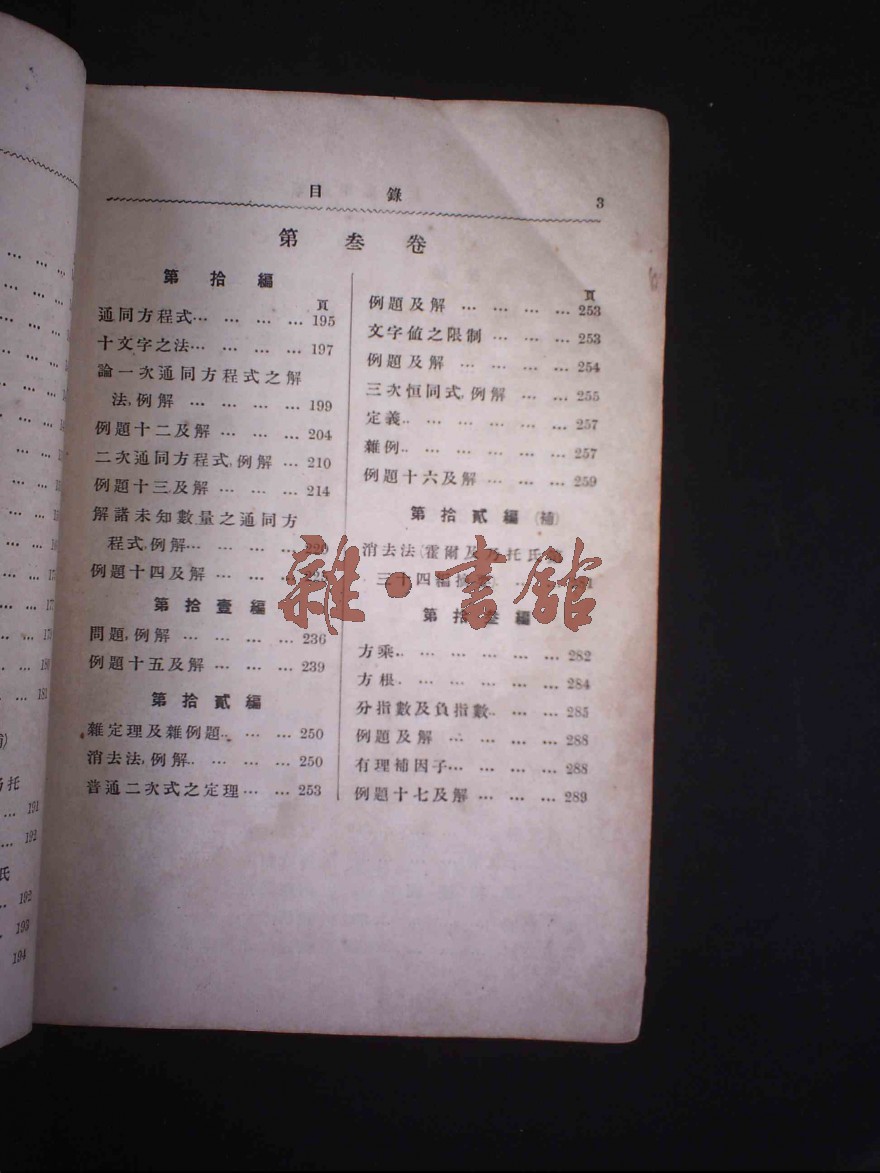 目 錄 3
第 叁 卷
第 拾 編
頁
通同方程式… … … … 195
十文字之法… … … … 197
論一次通同方程式之解
法,例解 … … … … 199
例題十二及解 … … … 204
二次通同方程式,例解 … 210
例題十三及解 … … … 214
解諸未知數量之通同方
程式,例解… … …
例題十四及解 … …
第 拾 壹 編
問題,例解 … … … … 236
例題十五及解 … … … 239
第 拾 貳 編
雜定理及雜例題.. … … 250
消去法,例解.. … … … 250
普通二次式之定理… … 253
頁
例題及解 … … … … 253
文字値之限制 … … … 253
例題及解 … … … … 254
三次恒同式,例解 … … 255
定義.. … … … … … 257
雜例.. … … … … … 257
例題十六及解 … … … 259
第 拾 貳 編 (補)
消去法(霍爾及乃托氏
三十四編 … …
第 拾 叁 編
方乘.. … … … … … 282
方根. … … … … … 284
分指數及負指數.. … … 285
例題及解 … … … … 288
有理補因子… … … … 288
例題十七及解 … … … 289
雜·書館
乃托
191
192
氏
192
193
194
180
181